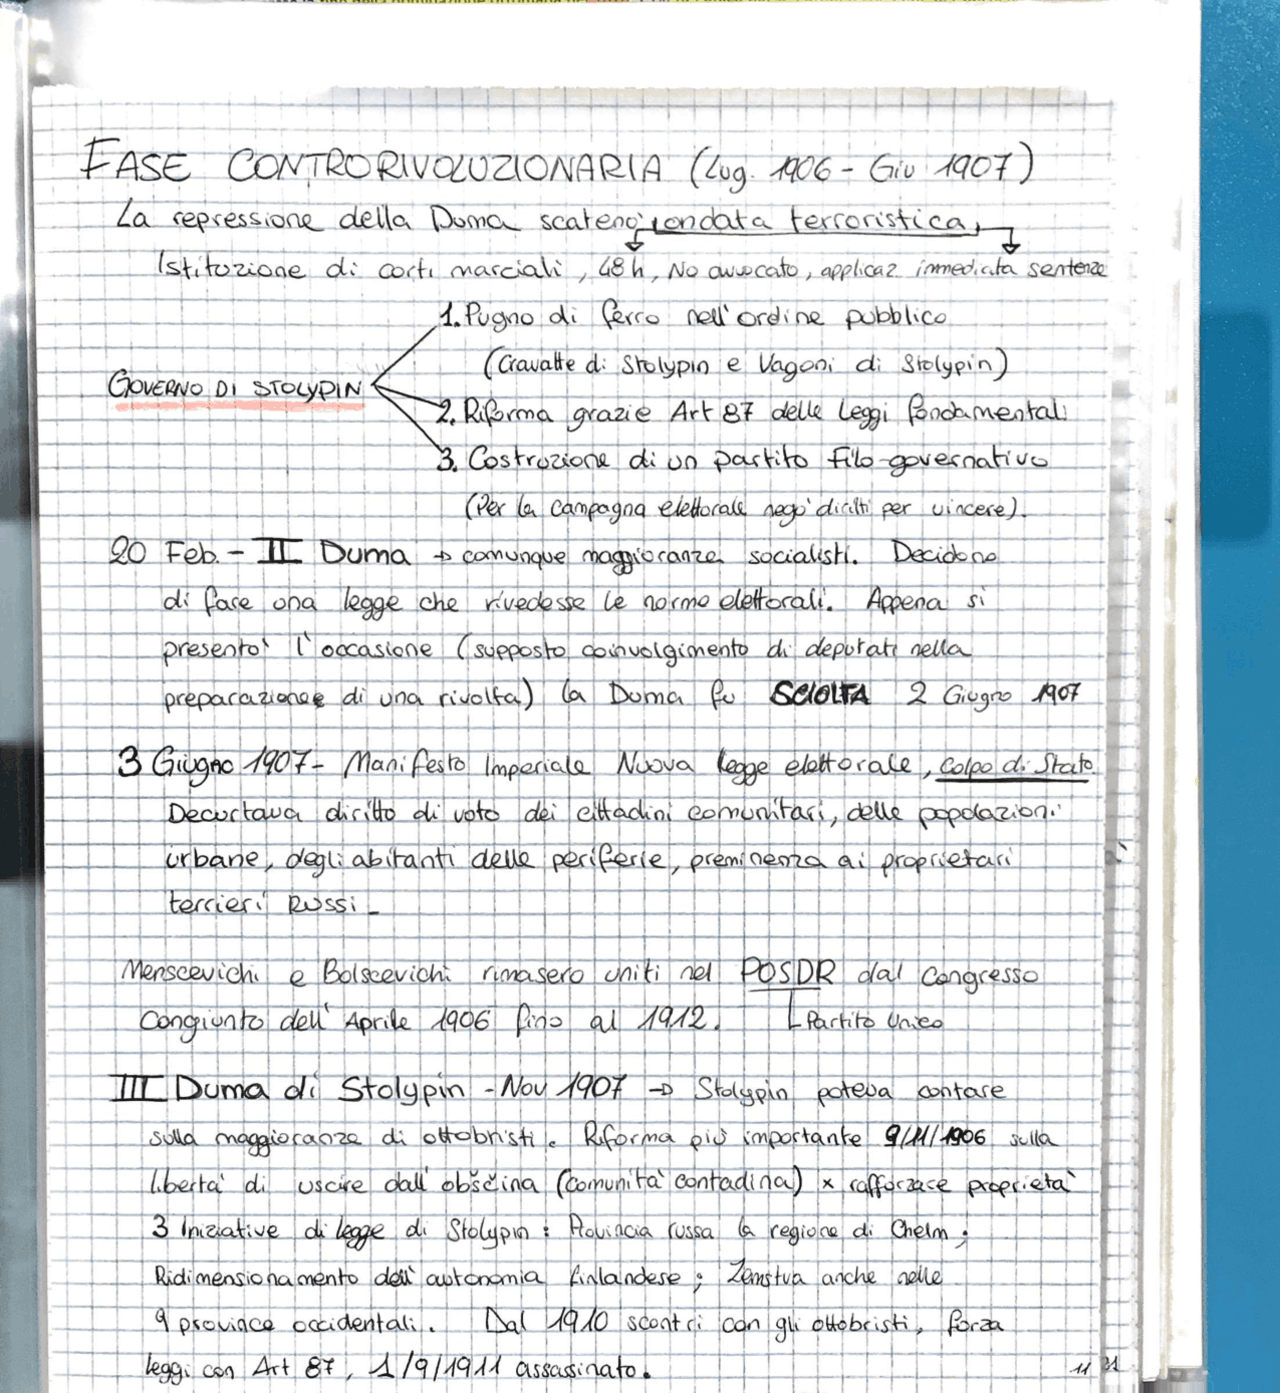 FASE CONTRORIVOLUZIONARIA (Lug. 1906 - Giu 1907)
La repressione della Duma scatenò ondata terroristica,
Istituzione di corti marciali, 48h, No avvocato, applicaz immediata sentenze
1. Pugno di ferro nell'ordine pubblico
(Cravatte di Stolypin e Vagoni di Stolypin)
GOVERNO DI STOLYPIN
2. Riforma grazie Art 87 delle Leggi fondamentali
3. Costruzione di un partito filo-governativo
(Per la campagna elettorale negò diritti per vincere).
20 Feb. - II Duma → comunque maggioranza socialisti. Decidono
di fare una legge che rivedesse le norme elettorali. Appena si
presentò l'occasione (supposto coinvolgimento di deputati nella
preparazione di una rivolta) la Duma fu SCIOLTA 2 Giugno 1907
3 Giugno 1907 - Manifesto Imperiale Nuova legge elettorale, colpo di Stato.
Decurtava diritto di voto dei cittadini comunitari, delle popolazioni
urbane, degli abitanti delle periferie, preminenza ai proprietari
terrieri Russi -
Menscevichi e Bolscevichi rimasero uniti nel POSDR dal Congresso
Congiunto dell'Aprile 1906 fino al 1912. Partito Unico
III Duma di Stolypin - Nov 1907 → Stolypin poteva contare
sulla maggioranza di ottobristi. Riforma più importante 9/11/1906 sulla
libertà di uscire dall'obščina (comunità contadina) x rafforzare proprietà
3 Iniziative di legge di Stolypin: Provincia russa la regione di Chelm;
Ridimensionamento dell'autonomia finlandese; Zemstva anche nelle
9 province occidentali. Dal 1910 scontri con gli ottobristi, forza
leggi con Art 87, 1/9/1911 assassinato.